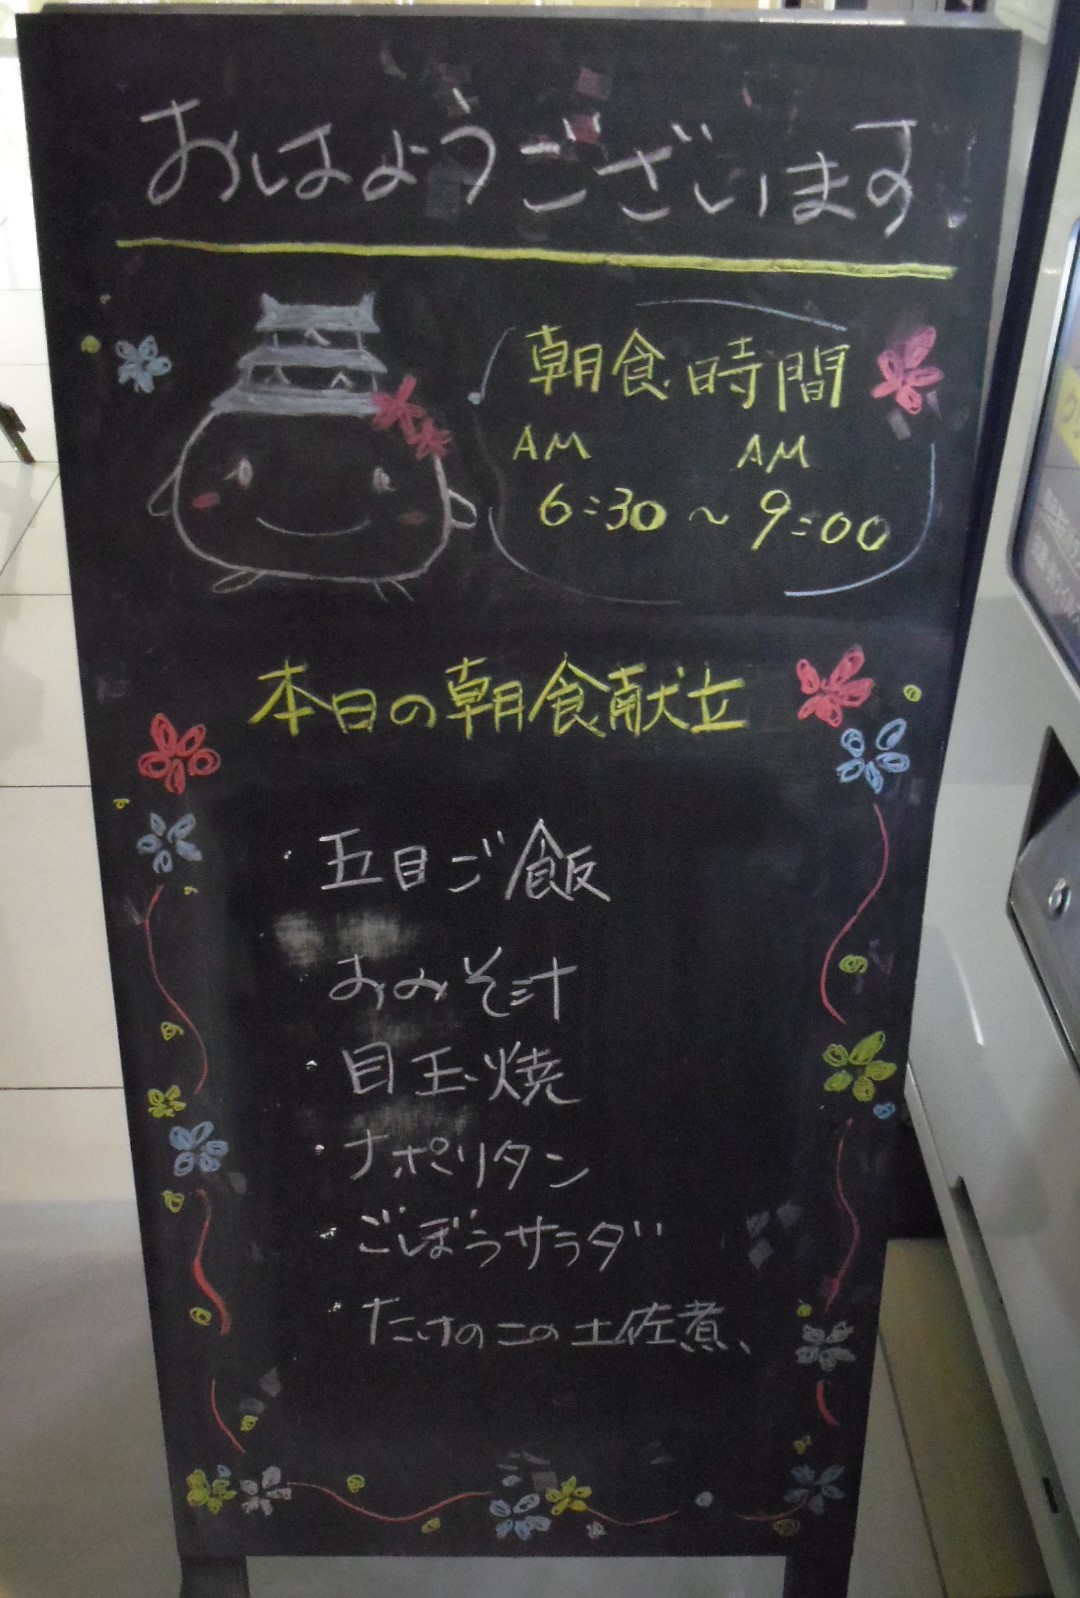 おはようございます
朝食時間
AM AM
6:30～9:00
本日の朝食献立
・五目ご飯
・おみそ汁
・目玉焼
・ナポリタン
・ごぼうサラダ
・たけのこの土佐煮